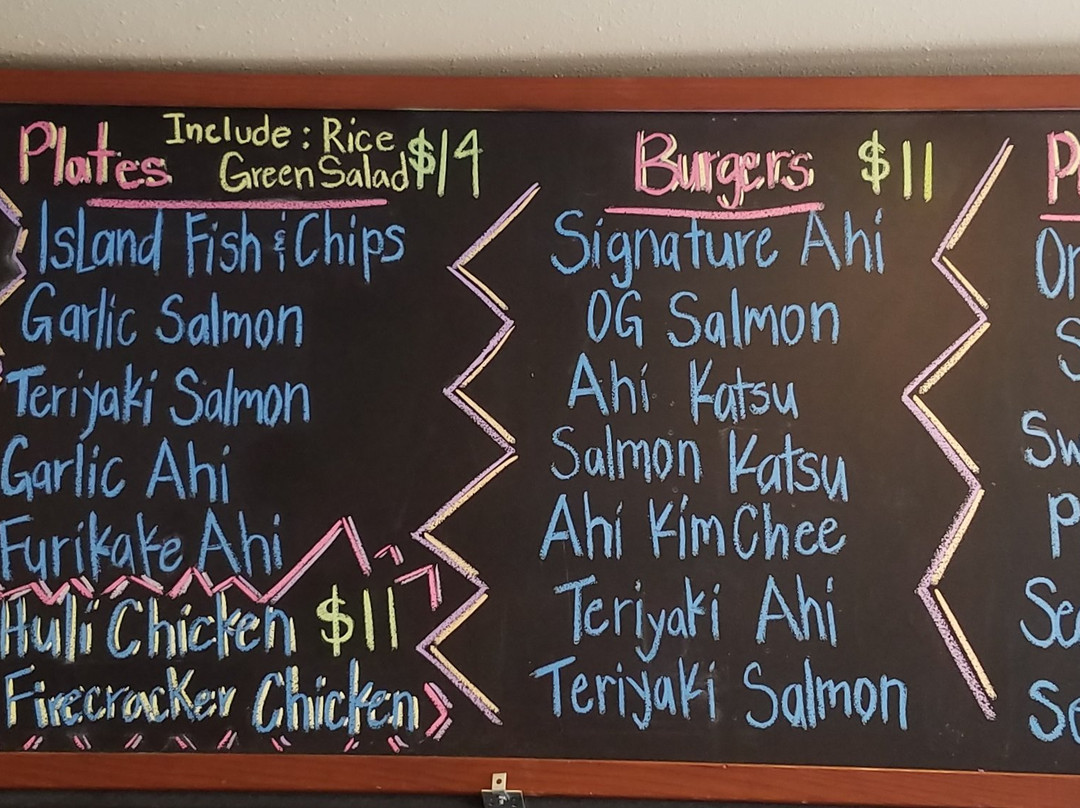 Plates Include: Rice $14
Green Salad
Island Fish & Chips
Garlic Salmon
Teriyaki Salmon
Garlic Ahi
Furikake Ahi
Huli Chicken $11
Firecracker Chicken
Burgers $11
Signature Ahi
OG Salmon
Ahi Katsu
Salmon Katsu
Ahi Kim Chee
Teriyaki Ahi
Teriyaki Salmon